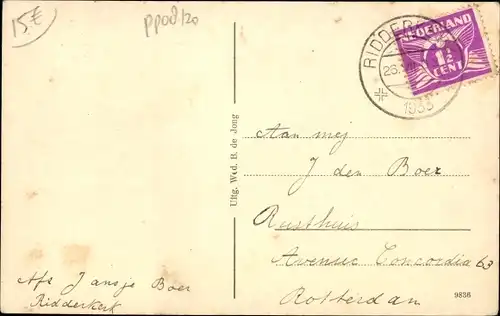 15€
ppod/20
RIDDER
26.VII
1933
NEDERLAND
1½
CENT
Uitg. Wed. B. de Jong
Aan mej
J den Boer
Rusthuis
Avenue Concordia 63
Rotterdam
Afs Jansje Boer
Ridderkerk
9836